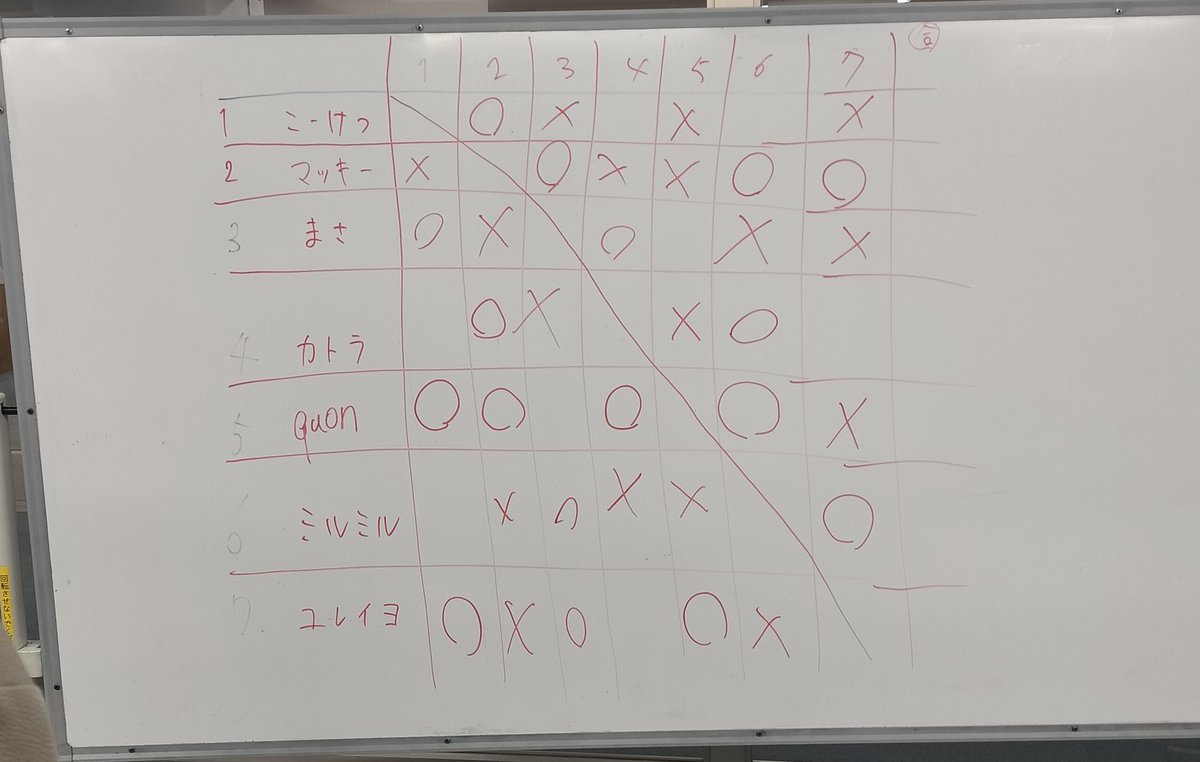 1 2 3 4 5 6 7
1 こーけつ ○ × × ×
2 マッキー × ○ × × ○ ○
3 まさ ○ × ○ × ×
4 カトラ ○ × × ○
5 quon ○ ○ ○ ○ ×
6 ミルミル × ○ × × ○
7 ユレイヨ ○ × ○ ○ ×